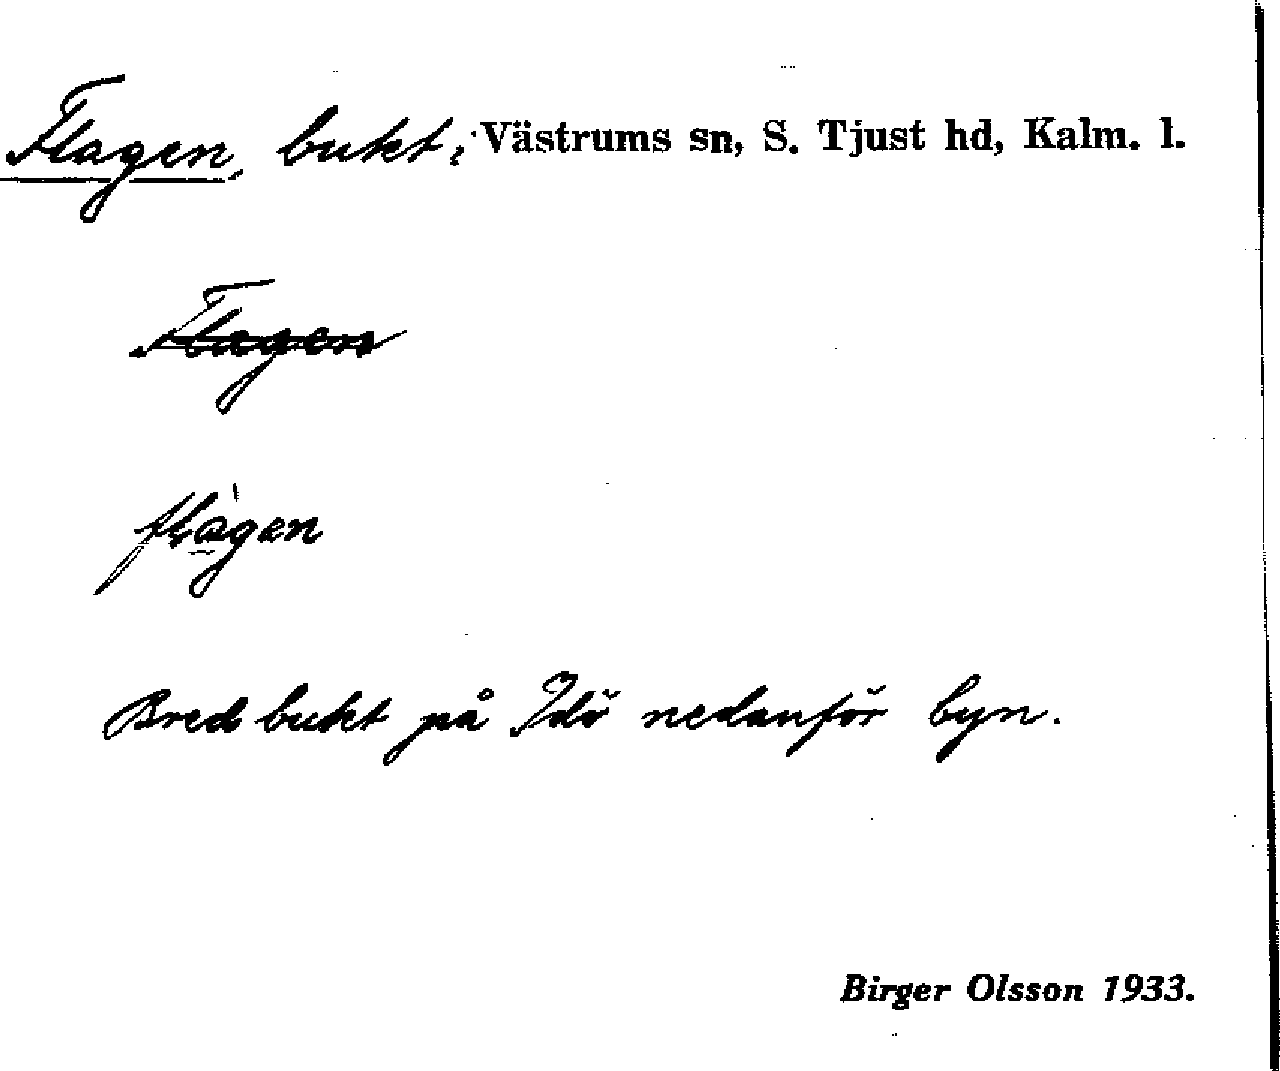 Flagen, bukt; Västrums sn, S. Tjust hd, Kalm. l.
Flagen
flàgen
Bred bukt på Idö nedanför byn.
Birger Olsson 1933.